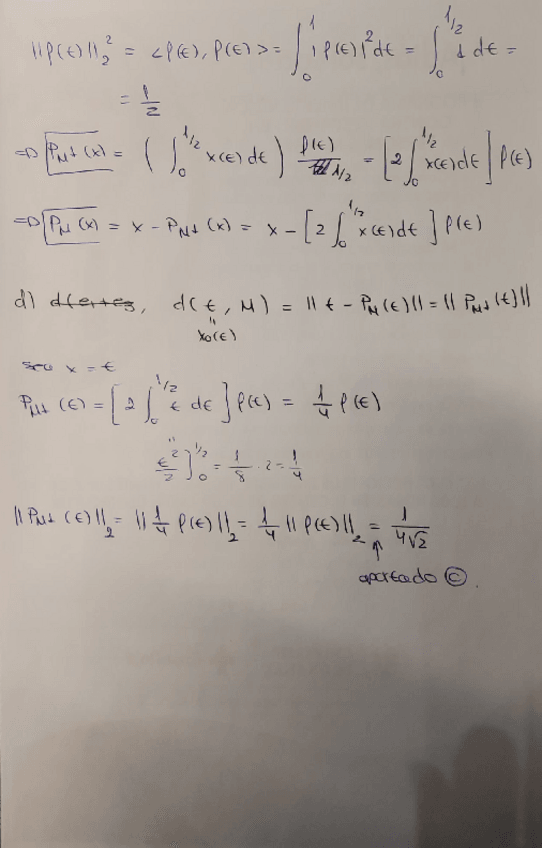 ||ρ(t)||₂² = <ρ(t), ρ(t)> = ∫₀¹ |ρ(t)|² dt = ∫₀^{1/2} 1 dt =
= 1/2
⇒ P_{M⊥}(x) = ( ∫₀^{1/2} x(t) dt ) ρ(t) / 1/2 = [ 2 ∫₀^{1/2} x(t) dt ] ρ(t)
⇒ P_M(x) = x - P_{M⊥}(x) = x - [ 2 ∫₀^{1/2} x(t) dt ] ρ(t)
d) d(t, M) = || t - P_M(t) || = || P_{M⊥}(t) ||
"
x₀(t)
x = t
P_{M⊥}(t) = [ 2 ∫₀^{1/2} t dt ] ρ(t) = 1/4 ρ(t)
"
t²/2 ]₀^{1/2} = 1/8 · 2 = 1/4
|| P_{M⊥}(t) ||₂ = || 1/4 ρ(t) ||₂ = 1/4 || ρ(t) ||₂ = 1/(4√2)
↑
apartado ⓒ.